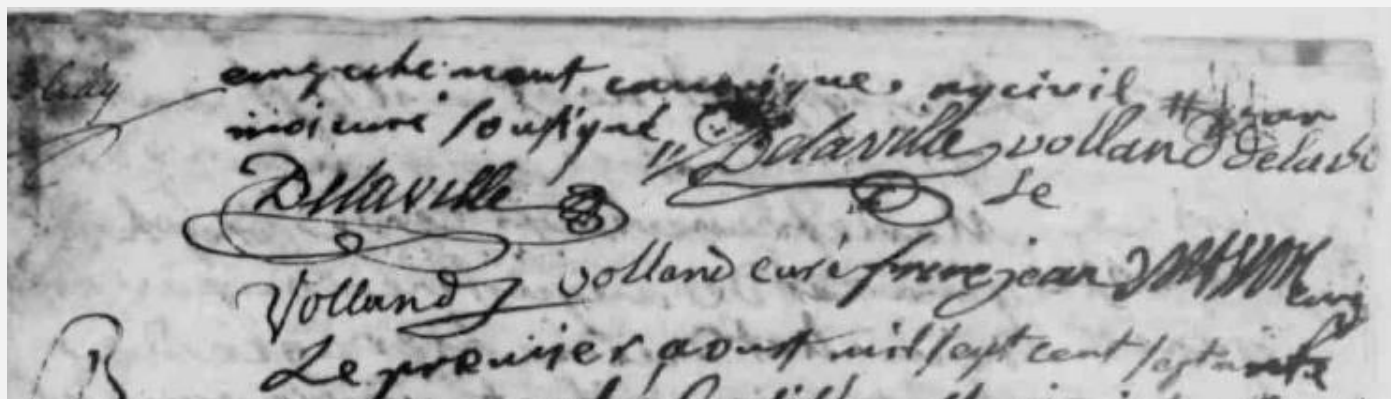 empechement canonique ny civil
moi curé sousigné Delaville volland delavi
Delaville le
Volland volland curé frere jean
Le premier aoust mil sept cent septante